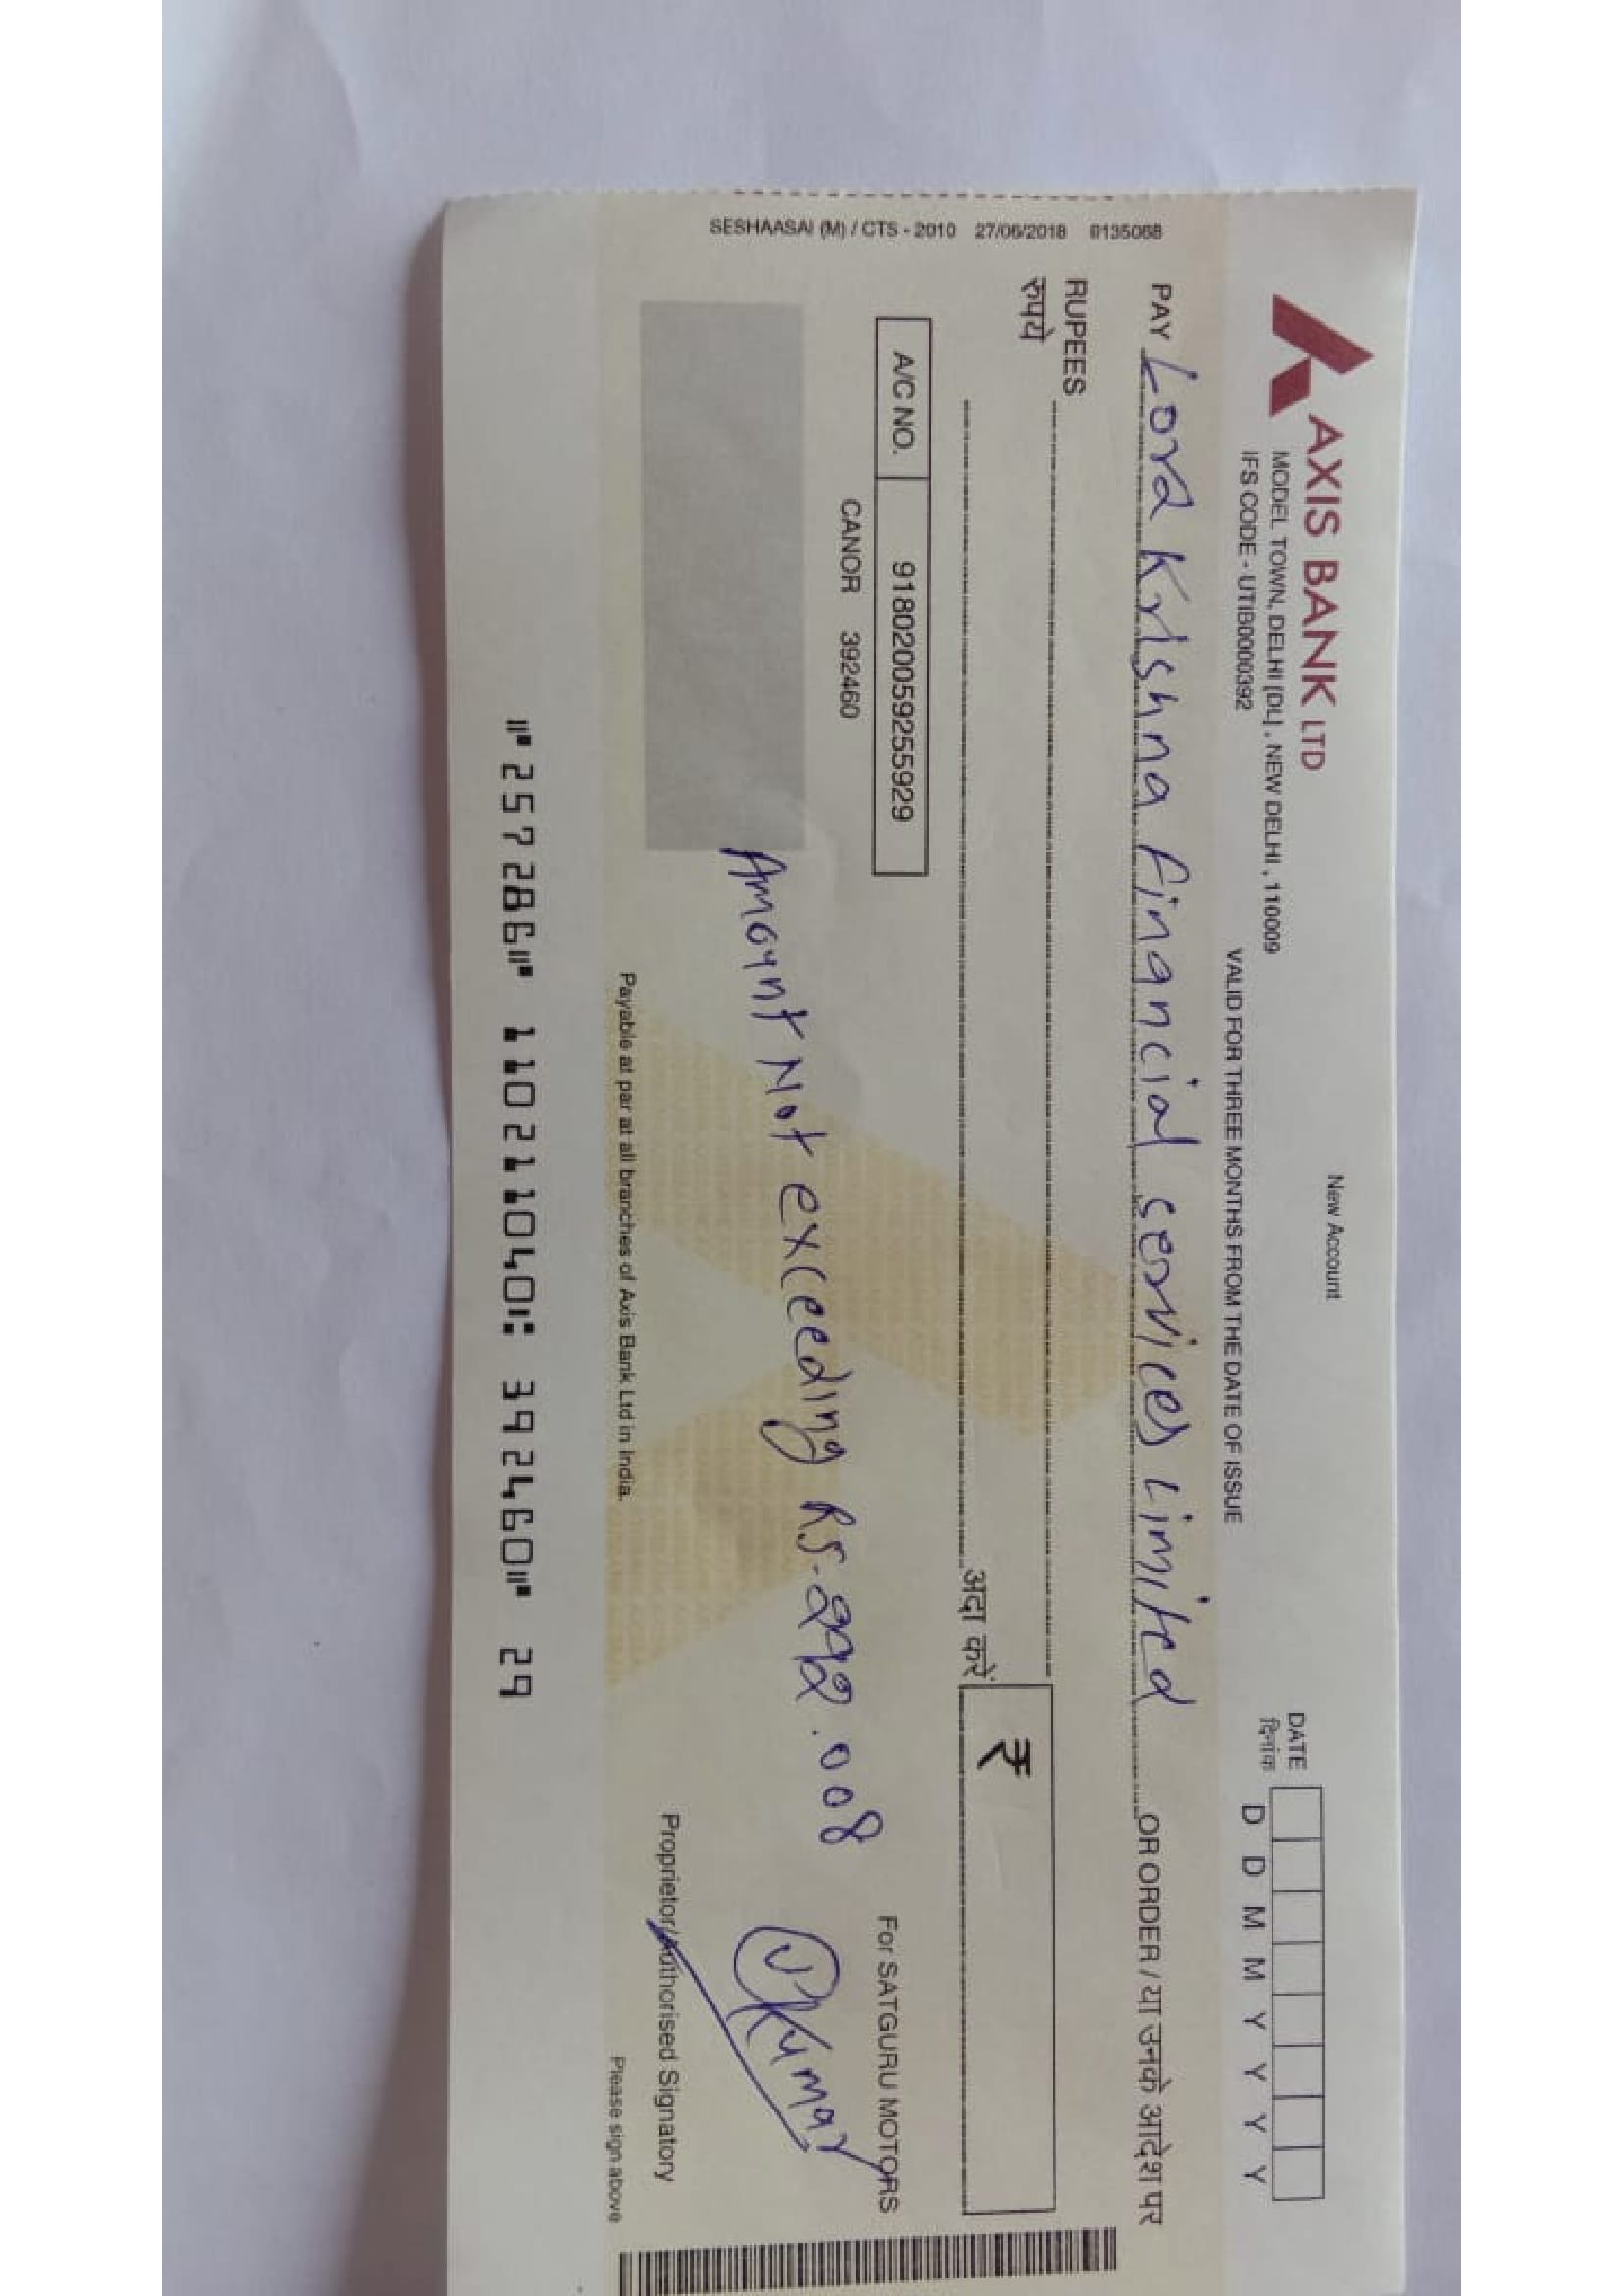 SESHAASAI (M) / CTS - 2010 27/06/2018 0135068
AXIS BANK LTD
MODEL TOWN, DELHI [DL], NEW DELHI, 110009
IFS CODE - UTIB0000392
New Account
VALID FOR THREE MONTHS FROM THE DATE OF ISSUE
DATE
दिनांक
D D M M Y Y Y Y
PAY Lord Krishna Financial services Limited OR ORDER / या उनके आदेश पर
RUPEES
रुपये
अदा करें
₹
A/C NO. 918020059255929
CANOR 392460
For SATGURU MOTORS
Amount Not exceeding Rs.
Kumar
Proprietor/Authorised Signatory
Please sign above
Payable at par at all branches of Axis Bank Ltd in India.
⑈257286⑈ 110211040⑆ 392460⑈ 29